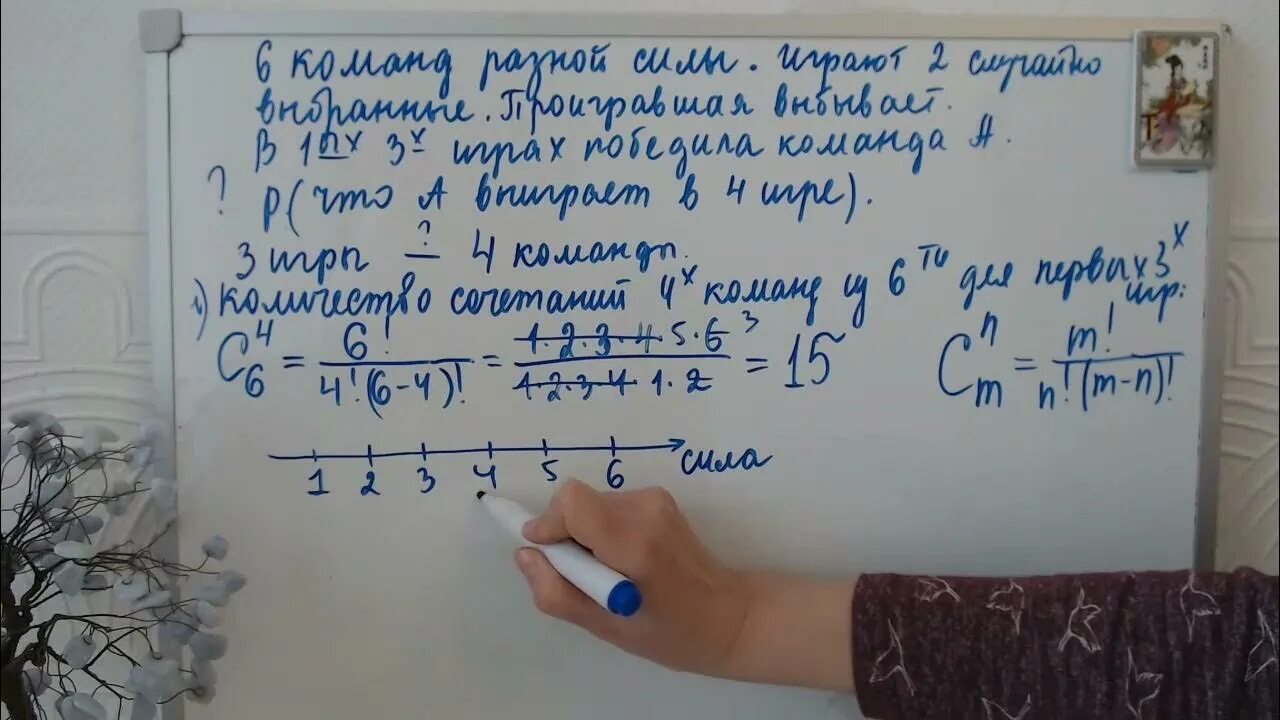 6 команд разной силы. Играют 2 случайно
выбранные. Проигравшая выбывает.
В 1ых 3х играх победила команда А.
? P(что А выиграет в 4 игре).
3 игры —?— 4 команды.
1) количество сочетаний 4х команд из 6ти для первых 3х игр:
C₆⁴ = 6! / 4!(6-4)! = 1·2·3·4·5·6 3 / 1·2·3·4·1·2 = 15
Cₘⁿ = m! / n!(m-n)!
1 2 3 4 5 6 сила